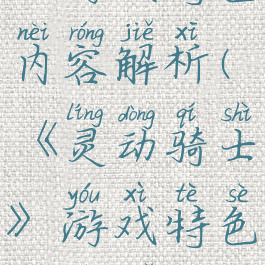 nèi róng jiě xī
内容解析(
líng dòng qí shì
《灵动骑士
yóu xì tè sè
》游戏特色